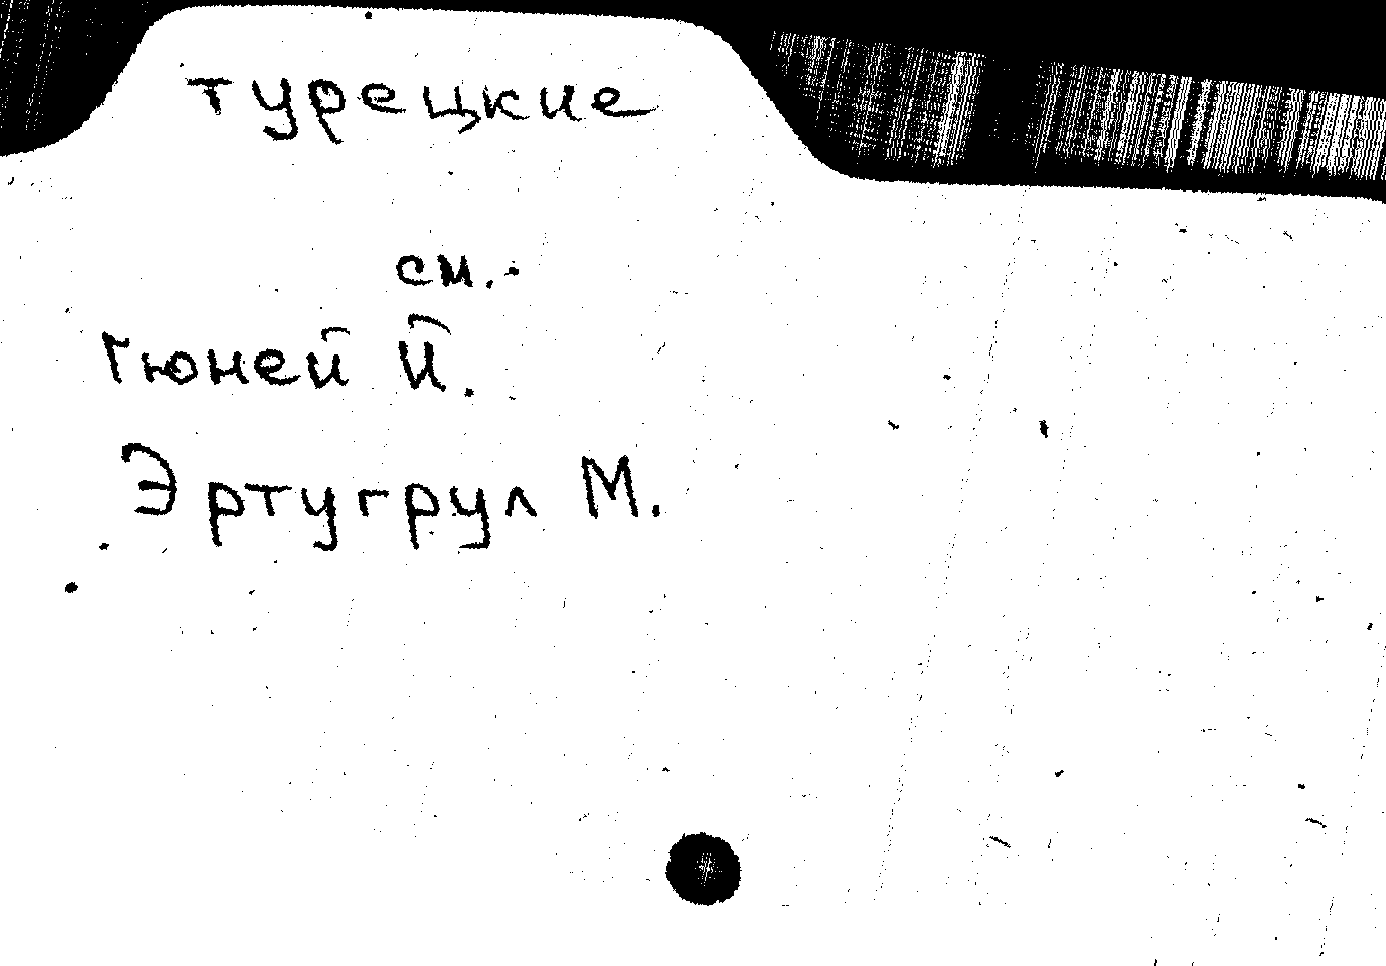 турецкие
см.
Гюней Й.
Эртугрул М.